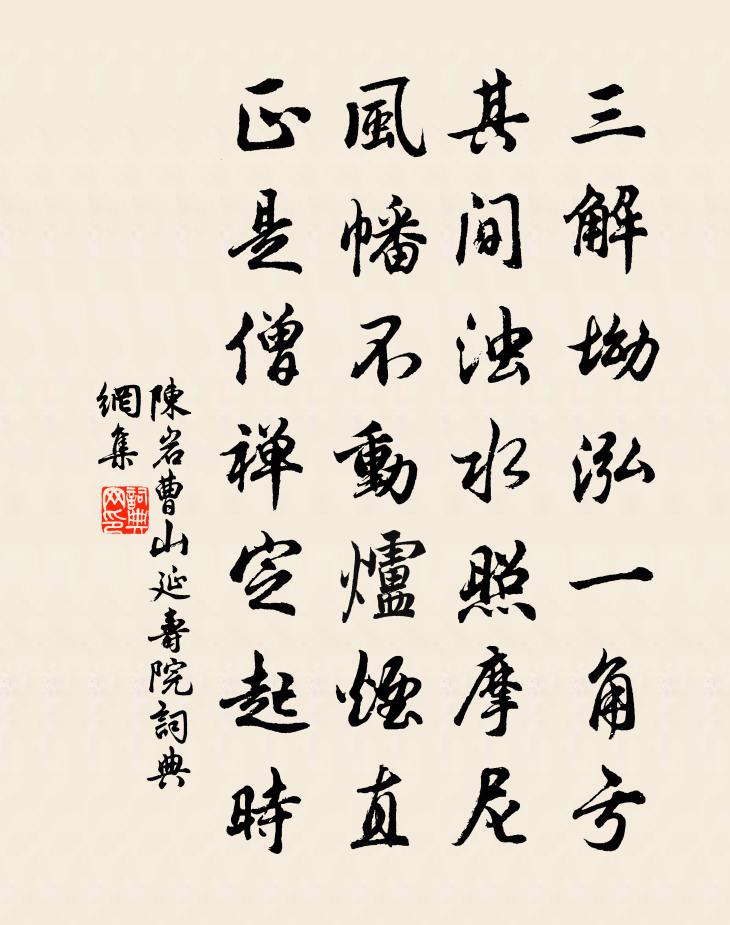 三解坳泓一角亏
其间浊水照摩尼
風幡不動爐煙直
正是僧禅定起時
陳岩曹山延壽院詞典
網集
詞典网印